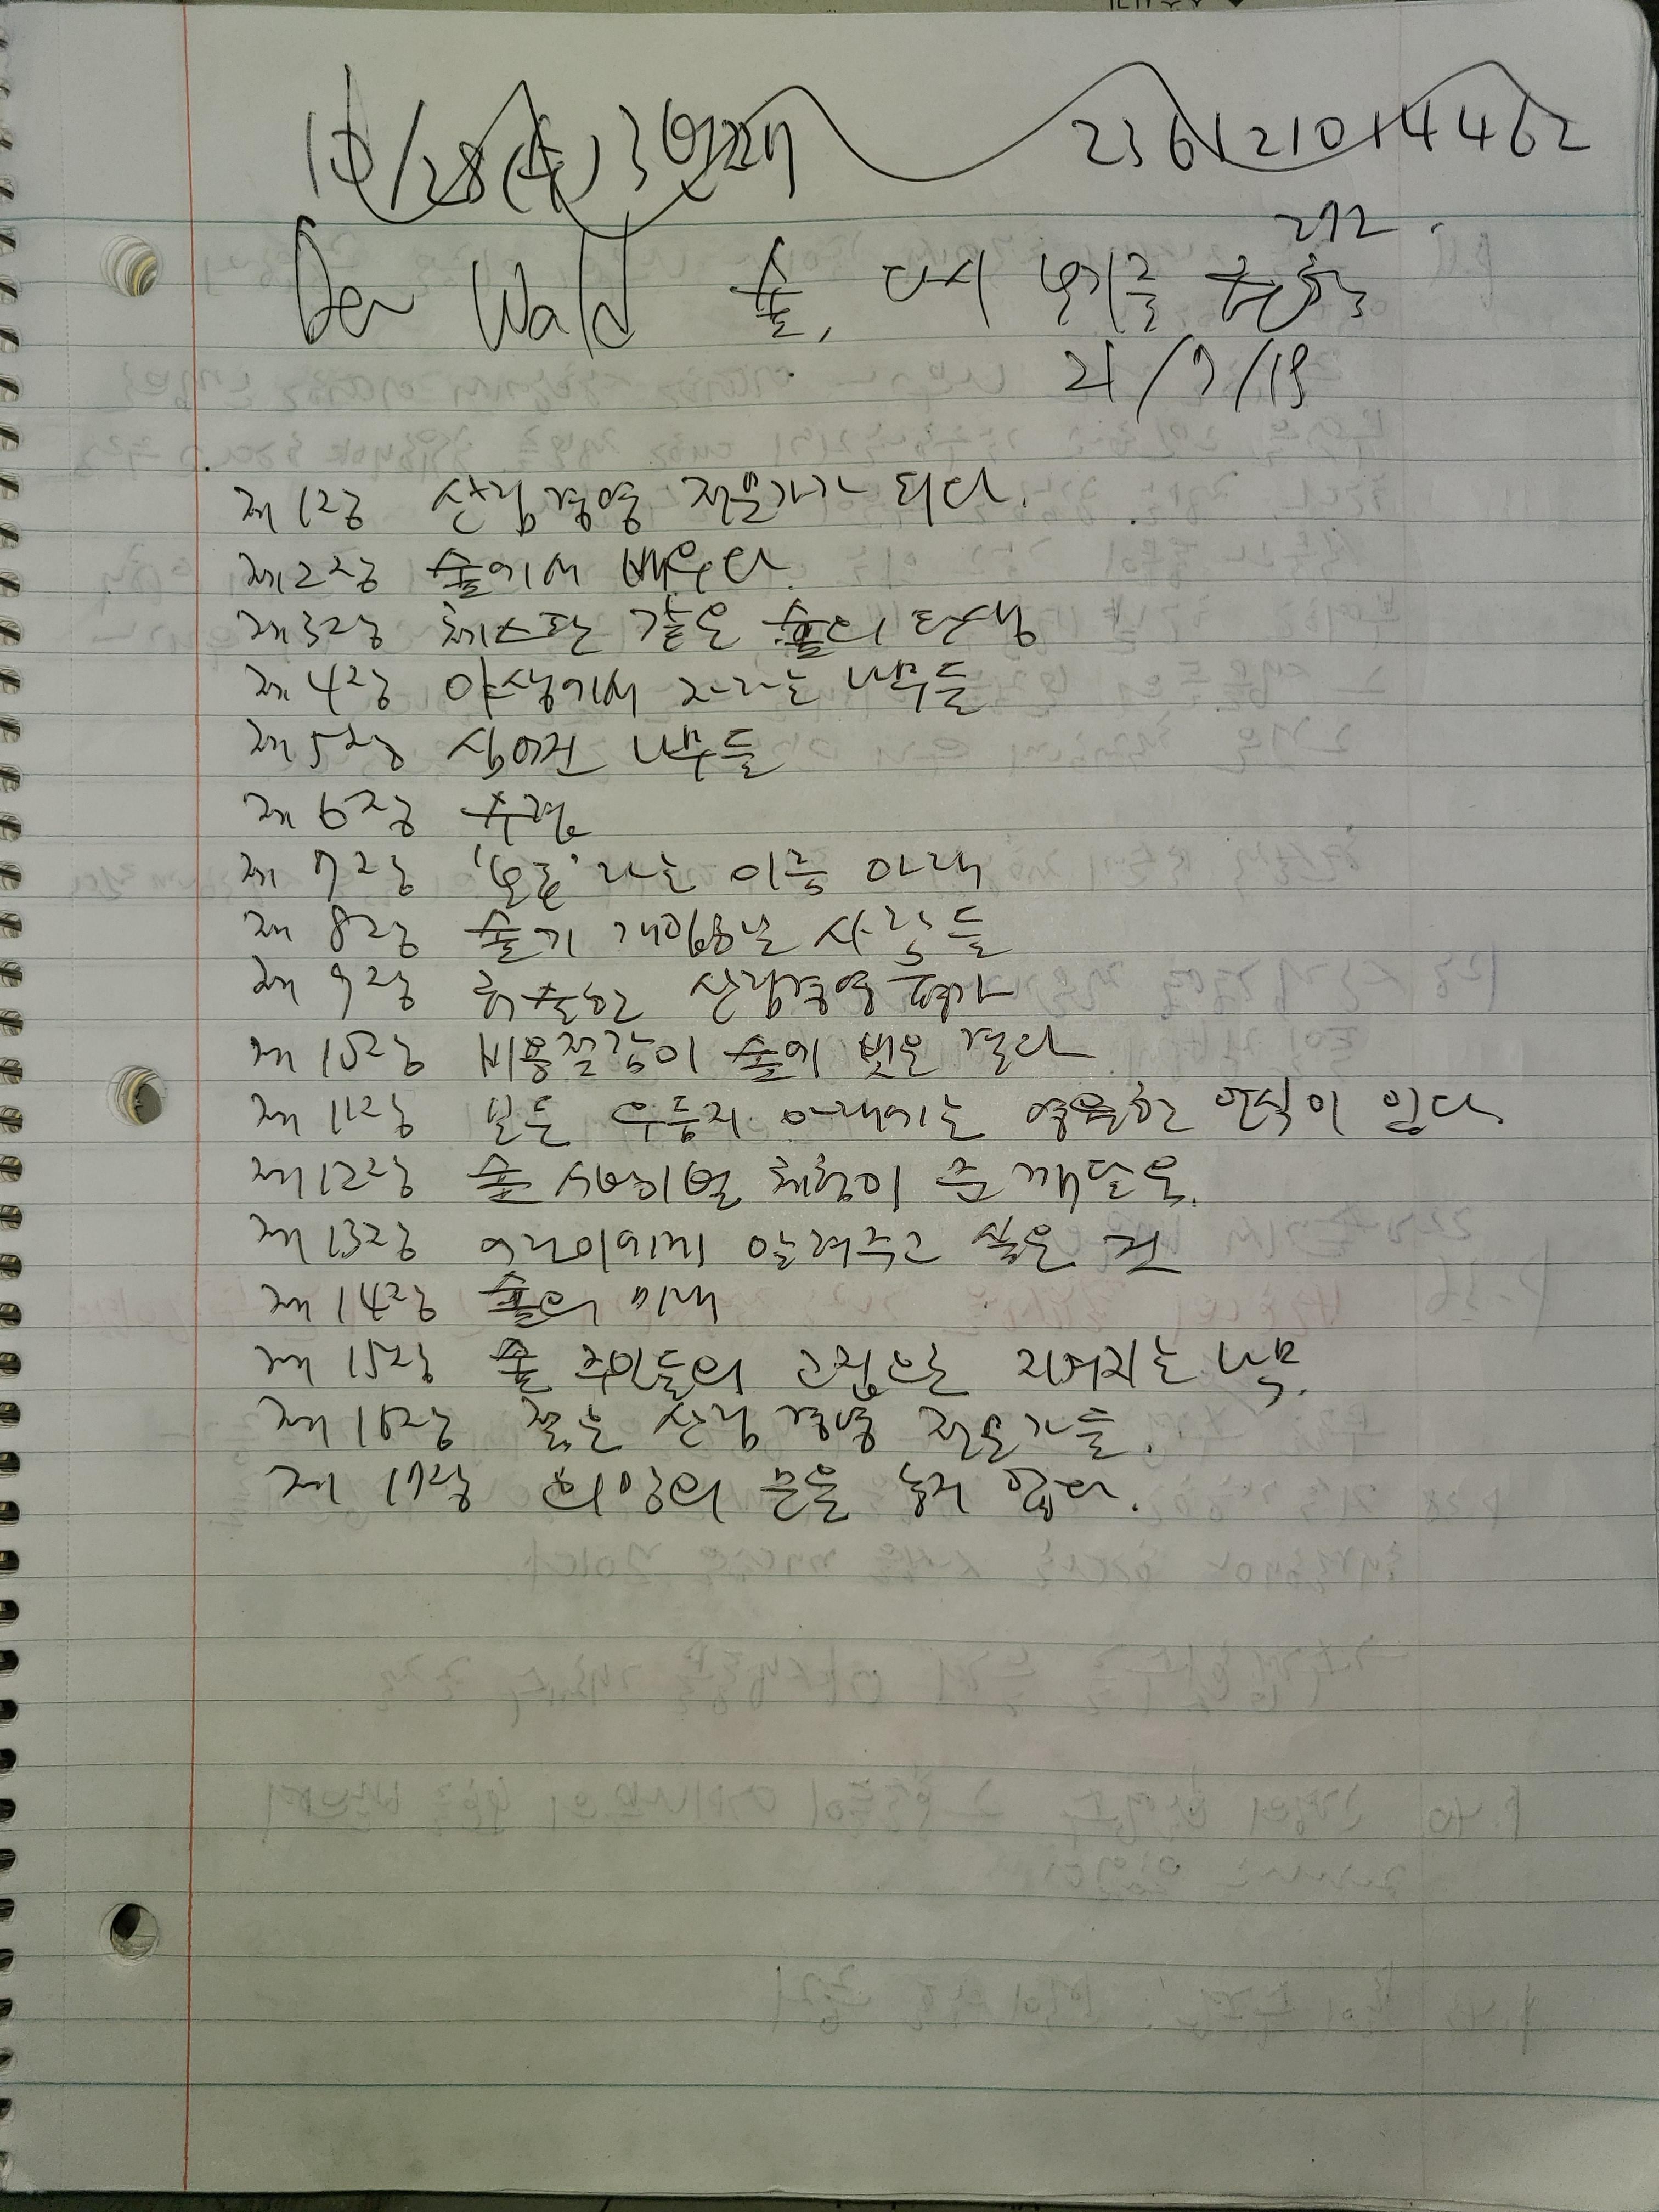 10/28(수) 3번째 236+210+4462
272.
Der Wald 숲, 다시 보기를 권함
21/7/19
제1장 산림경영 전문가가 되다.
제2장 숲에서 배우다.
제3장 체스판 같은 숲의 탄생
제4장 야생에서 자라는 나무들
제5장 심어진 나무들
제6장 수렵
제7장 '보호'라는 이름 아래
제8장 숲기 개입하는 사람들
제9장 허술한 산림경영 평가
제10장 비용절감이 숲에 빚은 결과
제11장 모든 우듬지 아래에는 영원한 안식이 있다
제12장 숲 서바이벌 체험이 준 깨달음.
제13장 어린이에게 알려주고 싶은 것
제14장 숲의 미래
제15장 숲 주인들의 고집으로 지켜지는 나무.
제16장 젊은 산림 경영 전문가들.
제17장 희망의 끈을 놓지 않다.